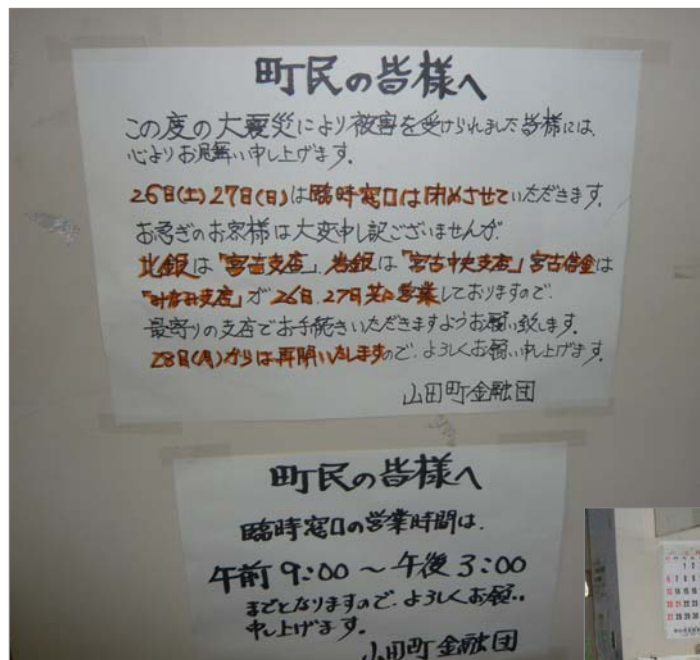 町民の皆様へ
この度の大震災により被害を受けられました皆様には、
心よりお見舞い申し上げます。
26日(土)27日(日)は臨時窓口は閉めさせていただきます。
お急ぎのお客様は大変申し訳ございませんが、
北銀は「宮古支店」、岩銀は「宮古中央支店」宮古信金は
「みなみ支店」が26日、27日共に営業しておりますので、
最寄りの支店でお手続きいただきますようお願い致します。
28日(月)からは再開いたしますので、よろしくお願い申し上げます。
山田町金融団
町民の皆様へ
臨時窓口の営業時間は、
午前9:00～午後3:00
までとなりますので、よろしくお願い
申し上げます。
山田町金融団